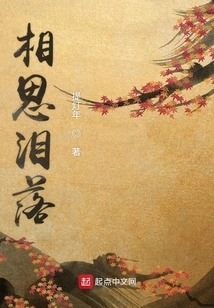 相思泪落
提灯年 ◎ 著
起点中文网